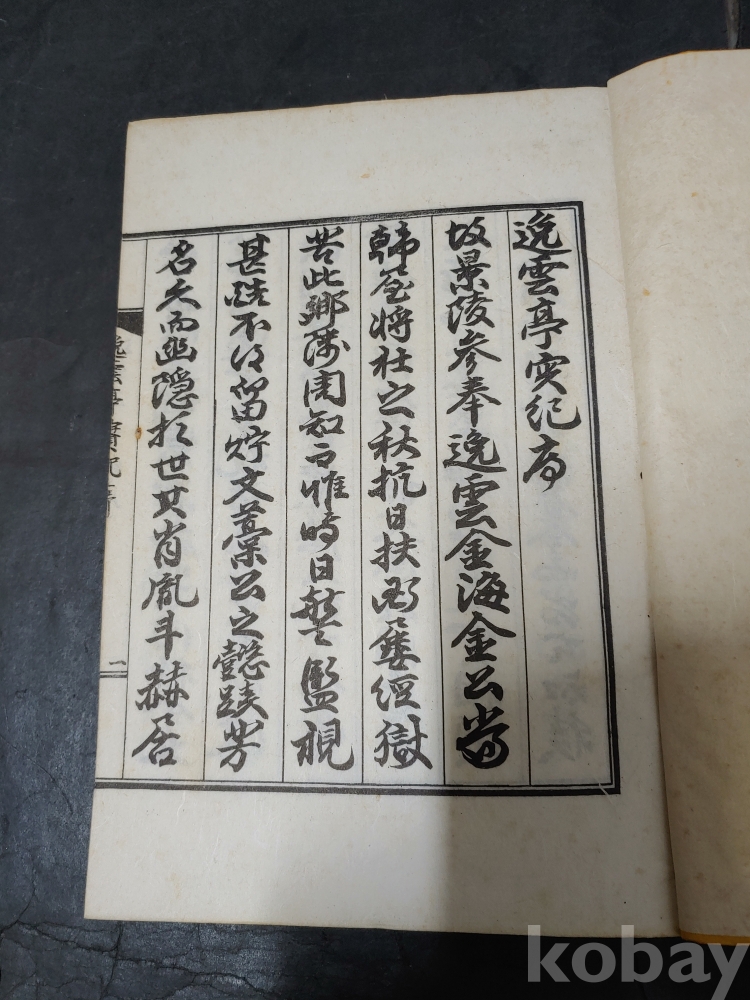 逸雲亭实紀序
故景陵參奉逸雲金海金公當
韓屋將社之秋抗日扶國屢經獄
苦此鄉隣周知而惟時日警監視
甚嚴不得留貯文藁公之懿蹟芳
名久而幽隱於世其肖胤斗赫居
逸雲亭實紀序
一
kobay